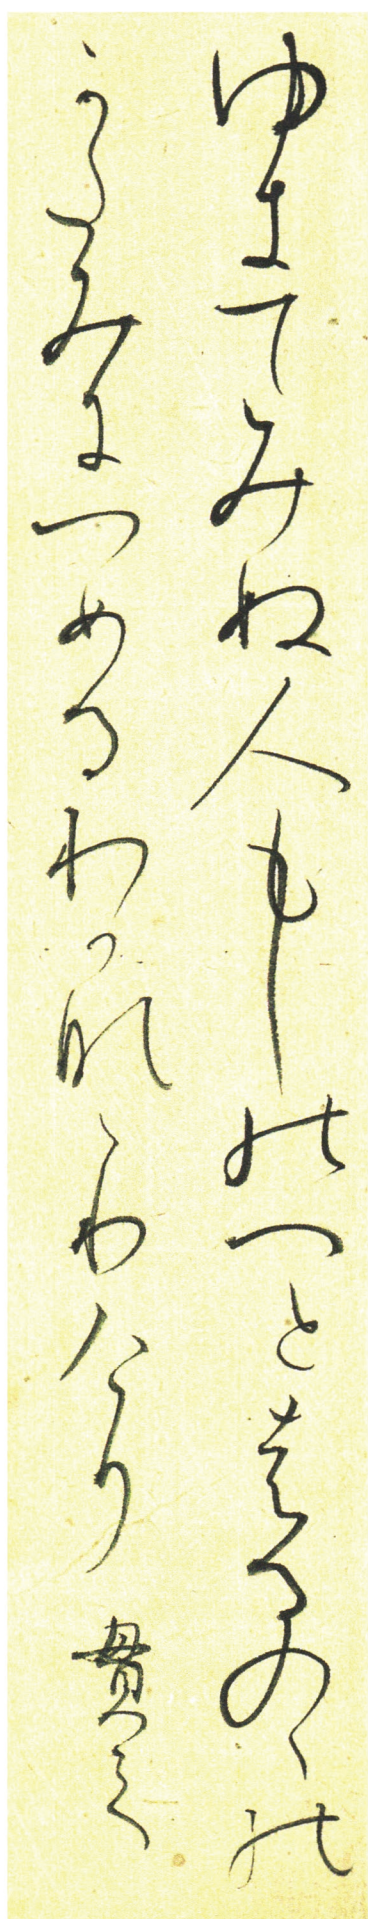 ゆきてみぬ人もしのへとはるのゝの
かたみにつめるわかなゝりけり 貫之